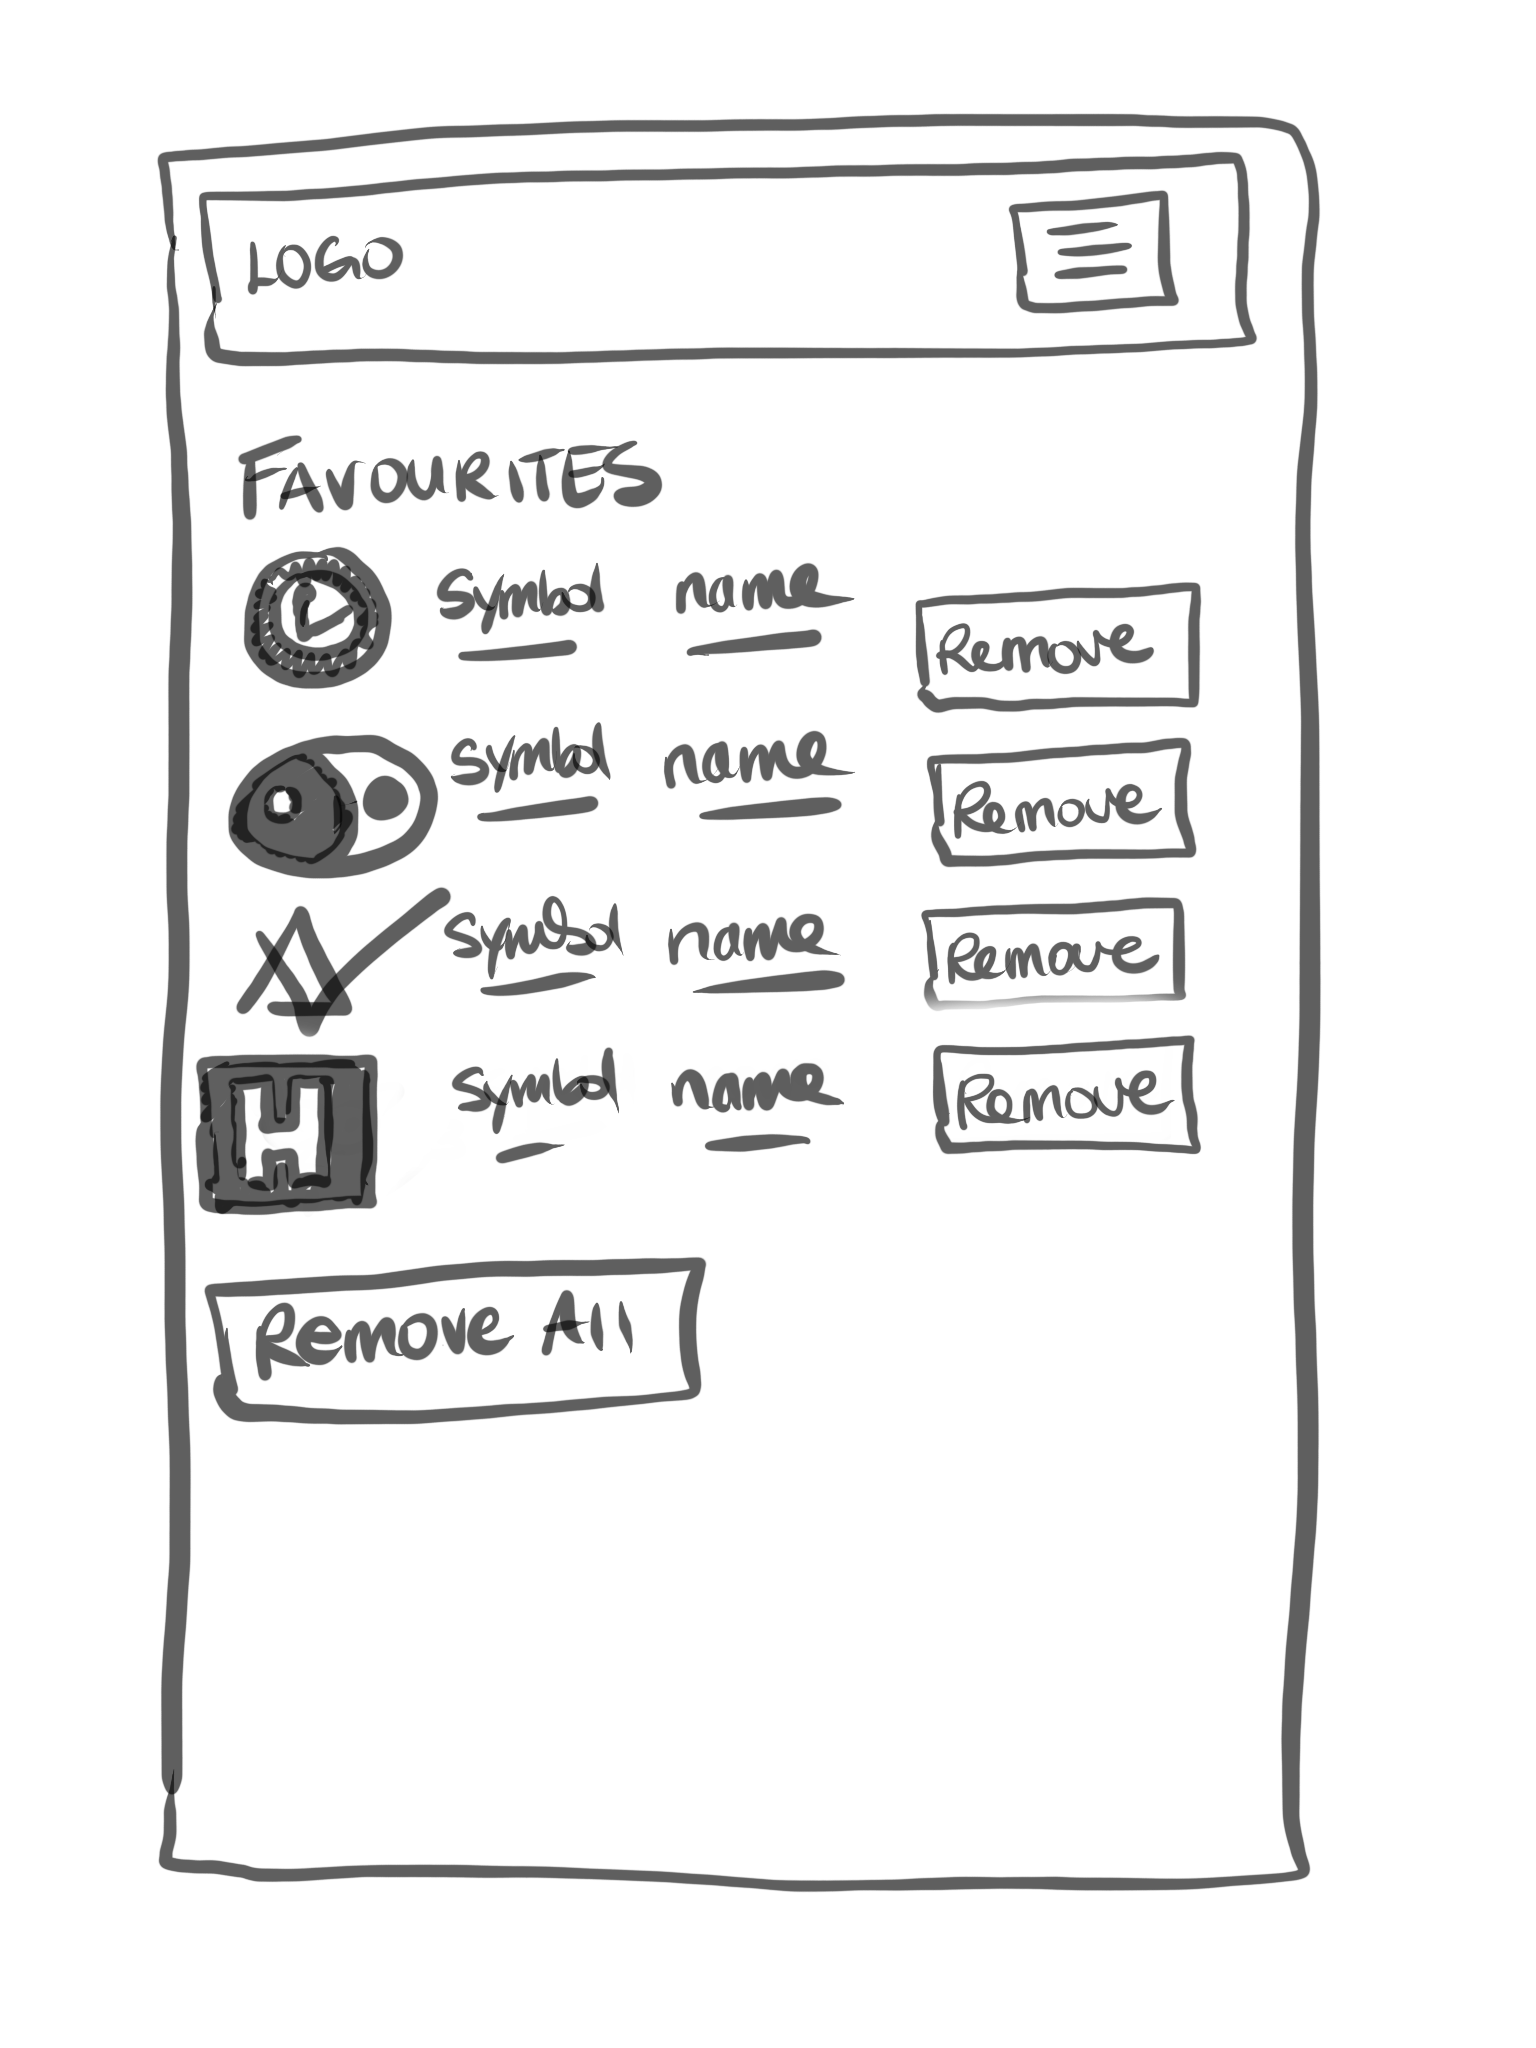 LOGO
FAVOURITES
Symbol name
Remove
Symbol name
Remove
Symbol name
Remove
H Symbol name
Remove
Remove All